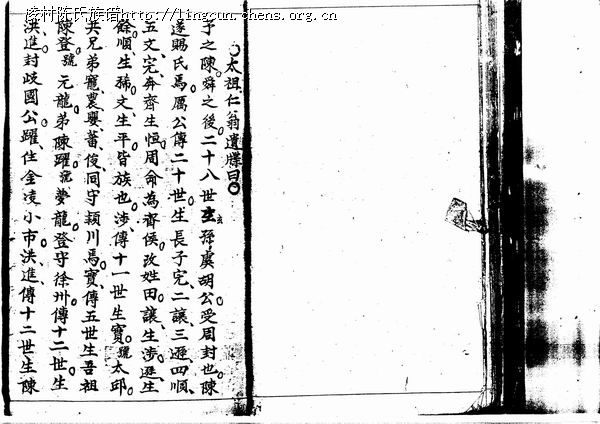 凌村陈氏族谱http://lingcun.chens.org.cn
○太祖仁翁遺牒曰○
予之陳舜之後二十八世玄孫虞胡公受周封也陳
遂賜氏焉厲公傳二十世生長子完二讓三遜四順
五文完奔齊生恒周命為齊侯改姓田讓生涉遜生
餘順生獅文生平皆族也涉傳十一世生寶號太邱
共兄弟寵農嬰蕃俊同守潁川焉寶傳五世生吾祖
陳登號元龍弟陳躍號夢龍登守徐州傳十二世生
洪進封岐國公躍住金凌小市洪進傳十二世生陳